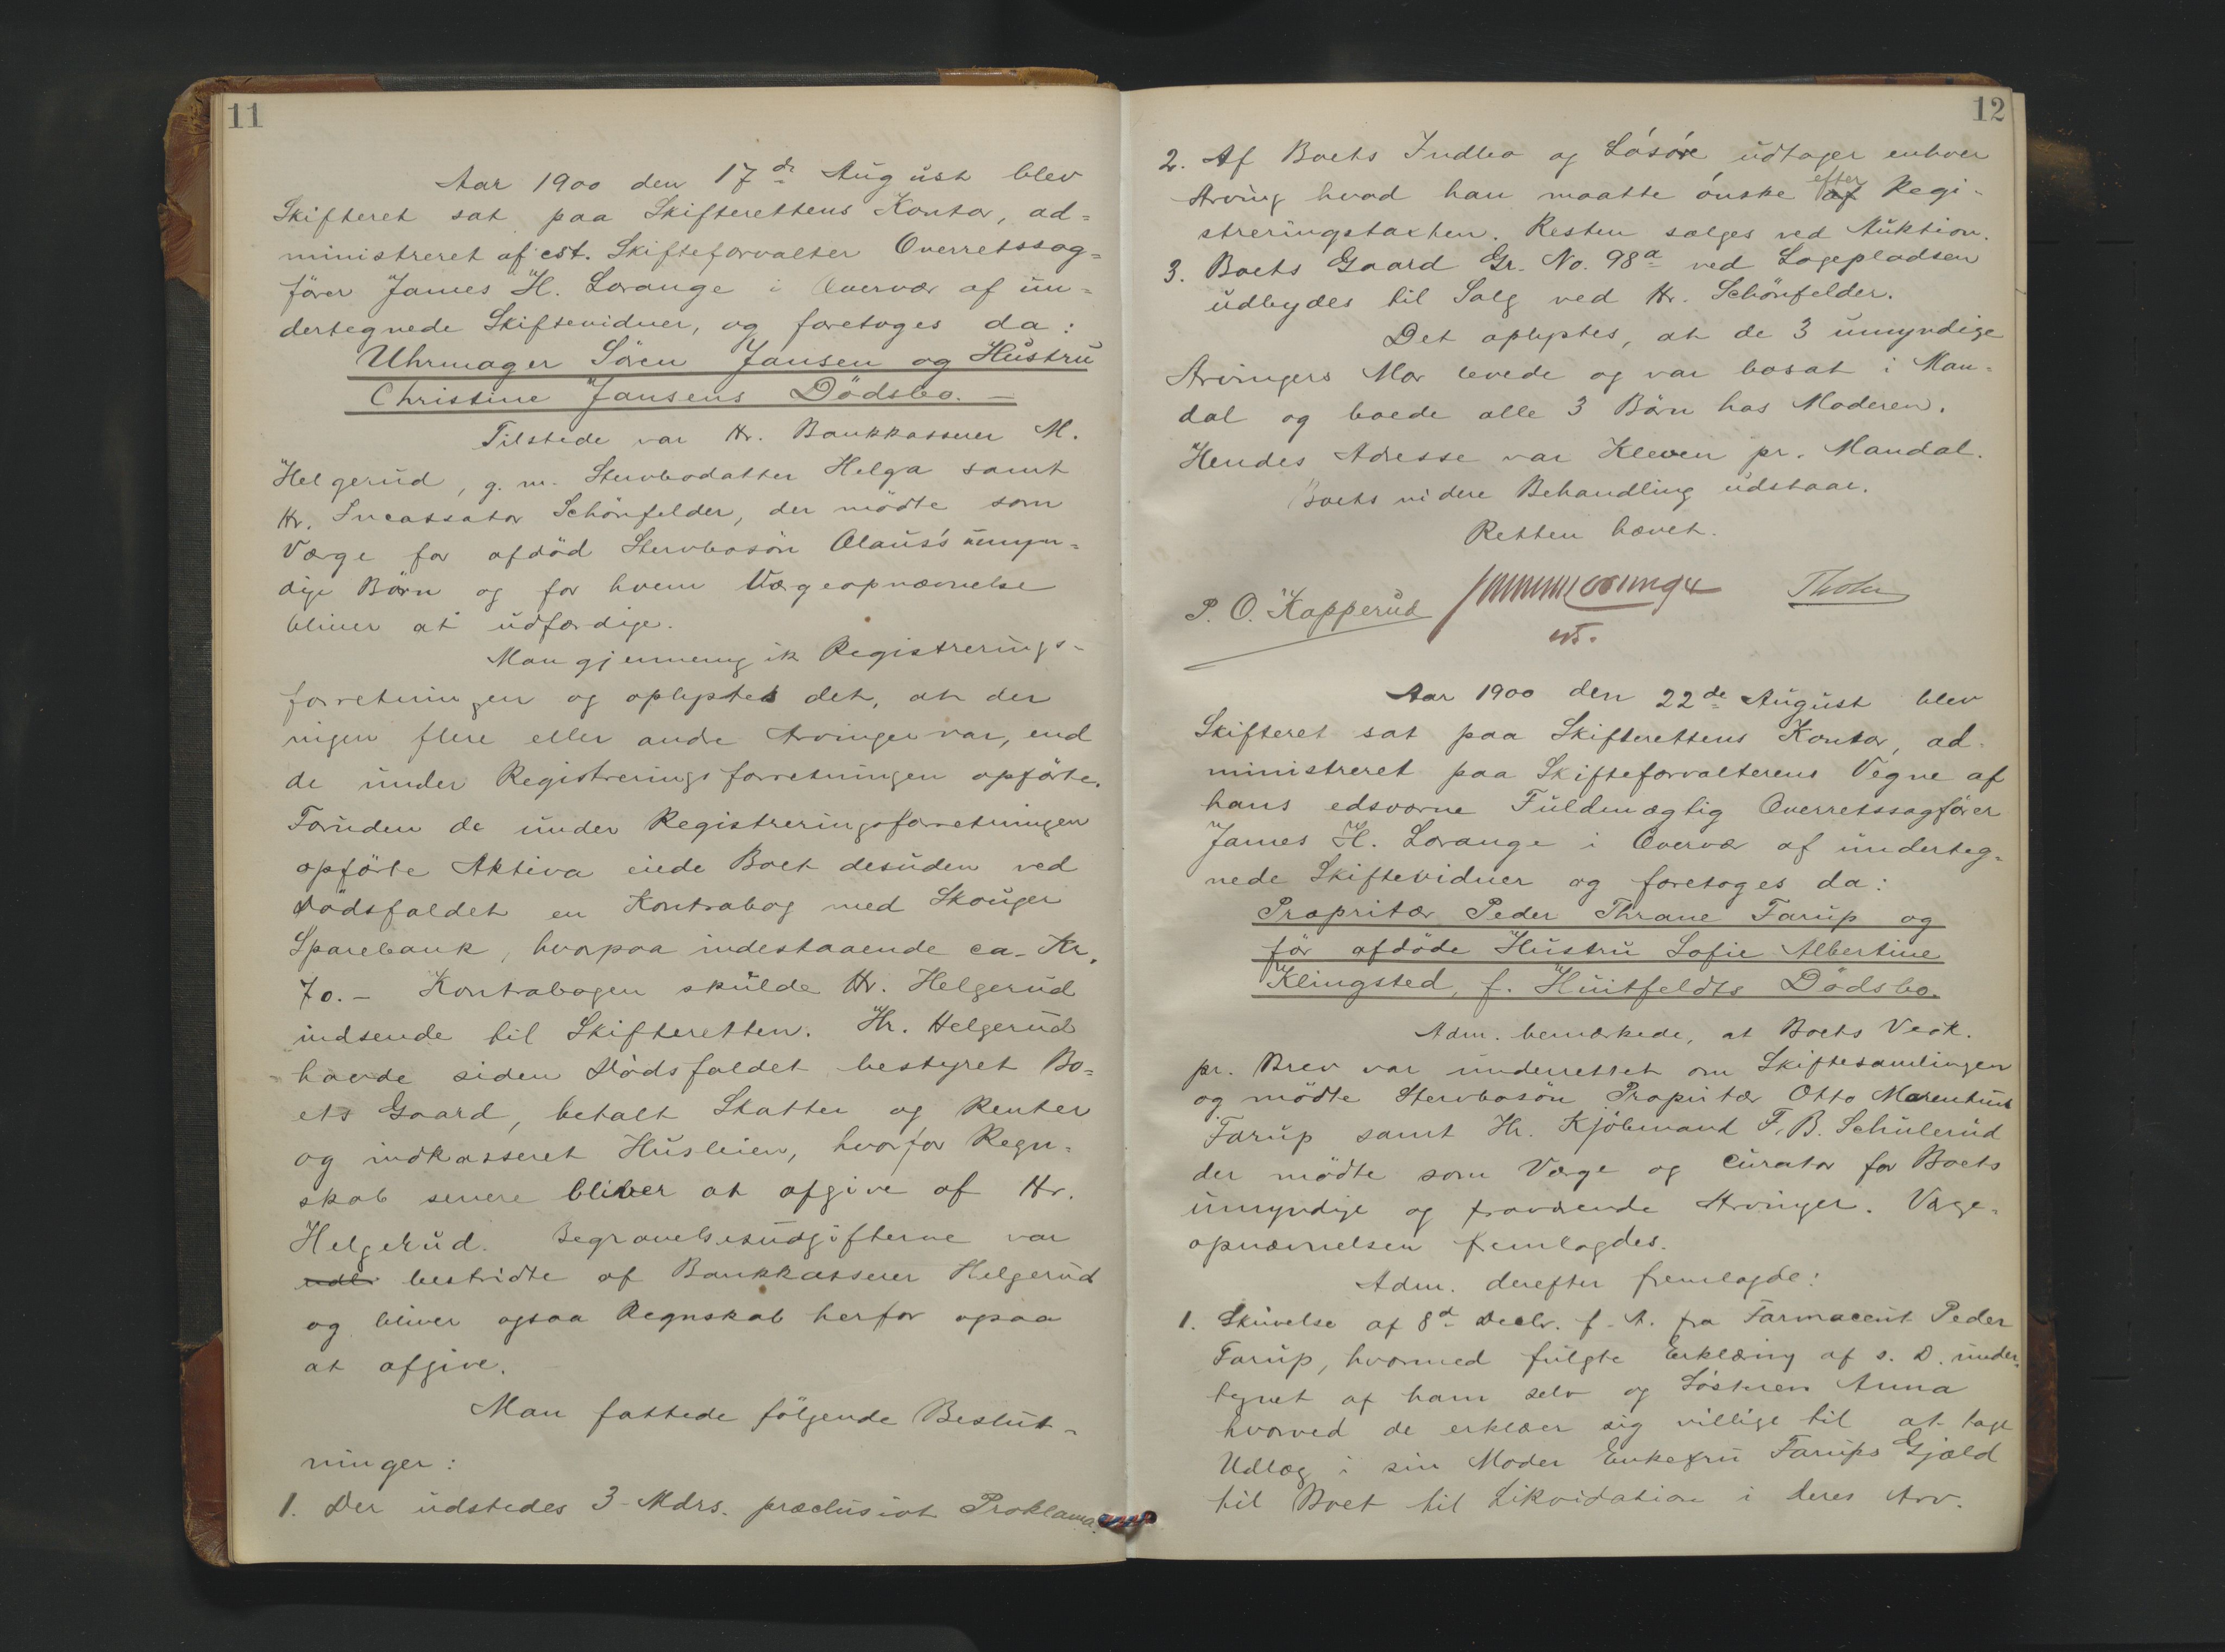 11
Aar 1900 den 17de August blev
Skifteret sat paa Skifterettens Kontor, ad=
ministreret af cst. Skifteforvalter Overretssag=
fører James H. Lorange i Overvær af un=
dertegnede Skiftevidner, og foretoges da:
Uhrmager Sören Jansen og Hustru
Christine Jansens Dödsbo. —
Tilstede var Hr. Bankkasserer M.
Helgerud, g. m. Stervbodatter Helga samt
Hr. Incassator Schönfelder, der mödte som
Værge for afdöd Stervbosön Olaus's umyn=
dige Börn og for hvem Værgeopnævnelse
bliver at udfærdige.
Man gjennemgik Registrerings=
forretningen og oplystes det, at der
ingen flere eller andre Arvinger var, end
de under Registreringsforretningen opförte.
Foruden de under Registreringsforretningen
opförte Aktiva eiede Boet desuden ved
Dödsfaldet en Kontrabog med Skouger
Sparebank, hvorpaa indestaaende ca. Kr.
70.— Kontrabogen skulde Hr. Helgerud
indsende til Skifteretten. Hr. Helgerud
havde siden Dödsfaldet bestyret Bo=
ets Gaard, betalt Skatter og Renter
og indkasseret Husleien, hvorfor Regn=
skab senere bliver at afgive af Hr.
Helgerud. Begravelsesudgifterne var
udli bestridte af Bankkasserer Helgerud
og bliver ogsaa Regnskab herfor ogsaa
at afgive.
Man fattede fölgende Beslut=
ninger:
1. Der udstedes 3 Mdrs. præclusivt Proklama.
12
2. Af Boets Indbo og Lösöre udtager enhver
Arving hvad han maatte önske af efter Regi=
streringstaxten. Resten sælges ved Auktion.
3. Boets Gaard Gr. No. 98a ved Logepladsen
udbydes til Salg ved Hr. Schönfelder.
Det oplystes, at de 3 umyndige
Arvingers Mor levede og var bosat i Man=
dal og boede alle 3 Börn hos Moderen.
Hendes Adresse var Kleven pr. Mandal.
Boets videre Behandling udstaar.
Retten hævet.
P. O. Kopperud James Lorange Thom
cst.
Aar 1900 den 22de August blev
Skifteret sat paa Skifterettens Kontor, ad=
ministreret paa Skifteforvalterens Vegne af
hans edsvorne Fuldmægtig Overretssagförer
James H. Lorange i Overvær af underteg=
nede Skiftevidner og foretoges da:
Propritær Peder Thrane Farup og
för afdöde Hustru Sofie Albertine
Klingsted, f. Huitfeldts Dödsbo.
Adm. bemærkede, at Boets Vedk.
pr. Brev var underrettet om Skiftesamlingen
og mödte Stervbosön Propritær Otto Marentius
Farup samt Hr. Kjöbmand F. B. Schulerud
der mödte som Værge og Curator for Boets
umyndige og fraværende Arvinger. Værge=
opnævnelsen fremlagdes.
Adm. derefter fremlagde:
1. Skrivelse af 8de Decbr. f. A. fra Farmaceut Peder
Farup, hvormed fulgte Erklæring af s. D. under=
tegnet af ham selv og Sösteren Anna
hvorved de erklærer sig villige til at tage
Udlæg i sin Moder Enkefru Farups Gjæld
til Boet til Likvidation i deres Arv.